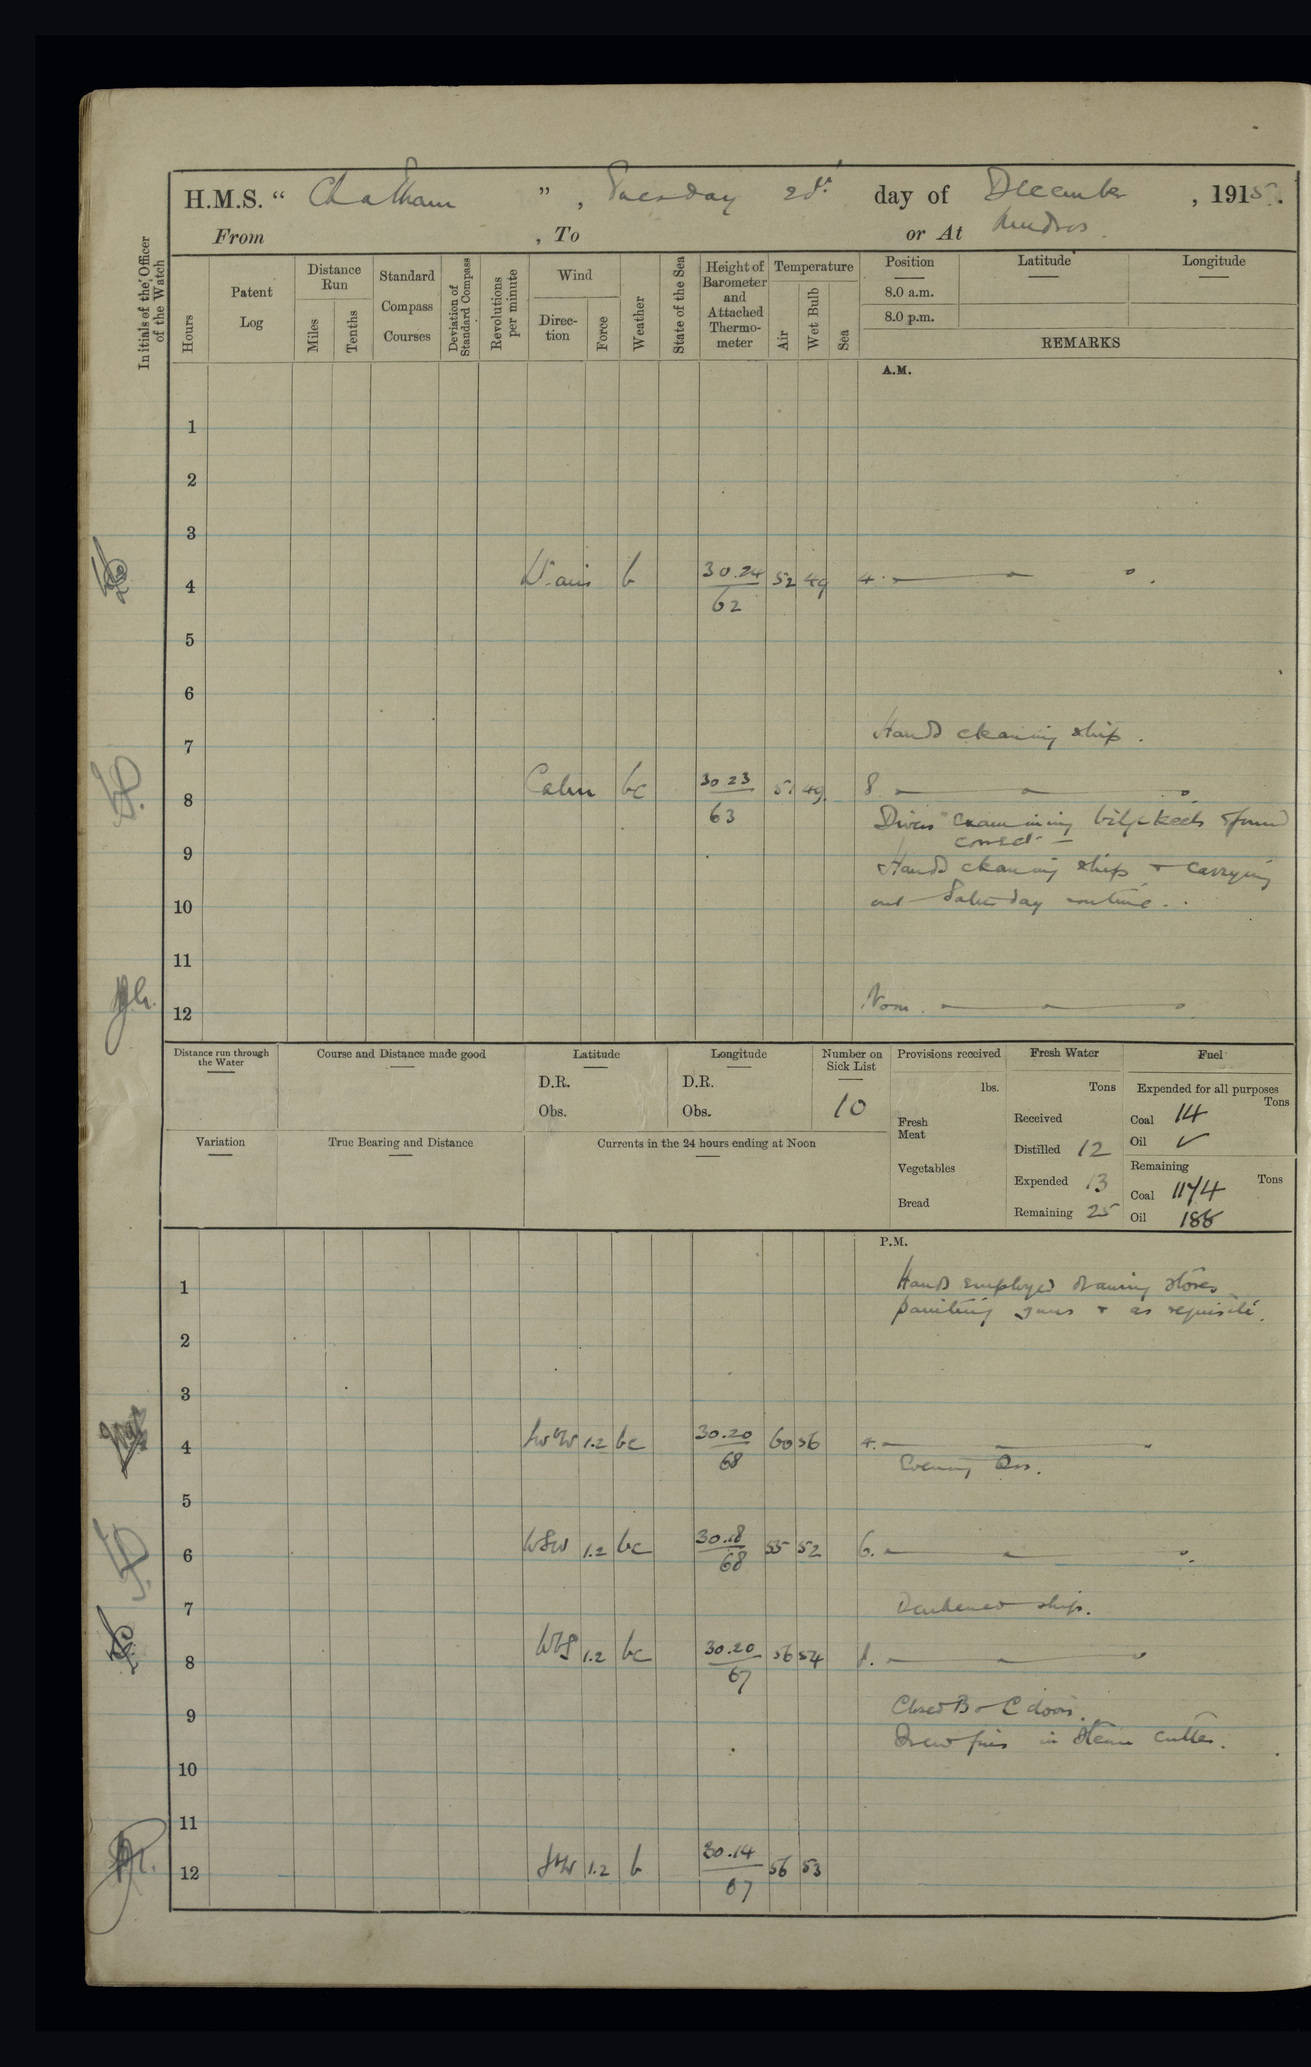 H.M.S. “ Chatham ” , Tuesday 28th day of December , 1915.
From , To or At Mudros.
Initials of the Officer of the Watch
Hours
Patent Log
Distance Run
Miles
Tenths
Standard Compass Courses
Deviation of Standard Compass
Revolutions per minute
Wind
Direction
Force
Weather
State of the Sea
Height of Barometer and Attached Thermometer
Temperature
Air
Wet Bulb
Sea
Position
8.0 a.m.
8.0 p.m.
Latitude
Longitude
REMARKS
A.M.
1
2
3
4 b 30.24 52 49 4.
62
5
6
Hands cleaning ship.
7
8 Calm bc 30.23 51 49 8
63
Divers examining bilge keels & found
correct
9
Hands cleaning ship & carrying
10 out Saturday routine.
11
12 Noon.
Distance run through the Water
Course and Distance made good
Latitude
D.R.
Obs.
Longitude
D.R.
Obs.
Number on Sick List
10
Provisions received
lbs.
Fresh Meat
Vegetables
Bread
Fresh Water
Tons
Received
Distilled 12
Expended 13
Remaining 25
Fuel
Expended for all purposes
Tons
Coal 14
Oil ✓
Remaining
Tons
Coal 1174
Oil 188
Variation
True Bearing and Distance
Currents in the 24 hours ending at Noon
P.M.
1 Hands employed drawing stores
painting guns & as requisite.
2
3
4 1.2 bc 30.20 60 56 4.
68
Evening Qrs.
5
6 WSW 1.2 bc 30.18 55 52 6.
68
7 Darkened ship.
8 WbS 1.2 bc 30.20 56 54 8.
67
9 Closed B & C doors.
Drew fires in Steam cutter.
10
11
12 1.2 b 30.14 56 53
67